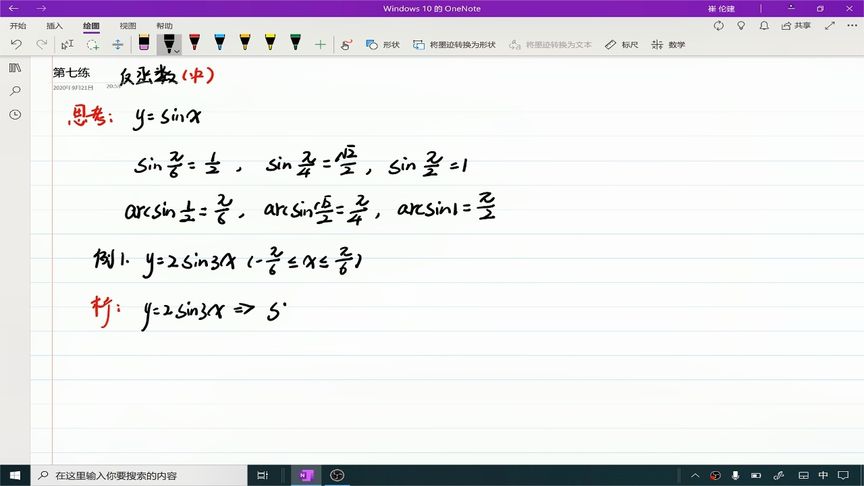 Windows 10 的 OneNote
崔 伦建
开始 插入 绘图 视图 帮助
共享
形状 将墨迹转换为形状 将墨迹转换为文本 标尺 数学
第七练 反函数(中)
2020年9月21日 20:5
思考: y=sinx
sin π/6 = 1/2 , sin π/4 = √2/2 , sin π/2 = 1
arcsin 1/2 = π/6 , arcsin √2/2 = π/4 , arcsin1 = π/2
例1. y=2sin3x (-π/6 ≤ x ≤ π/6)
析: y=2sin3x ⇒ s
在这里输入你要搜索的内容
中